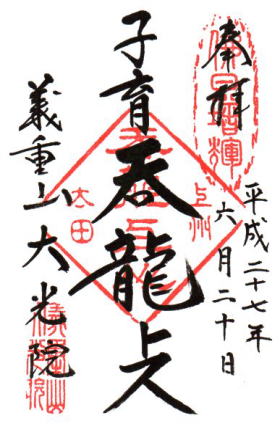 奉拝
佛日增輝
平成二十七年
六月二十日
上州
子育呑龍上人
太田
義重山大光院